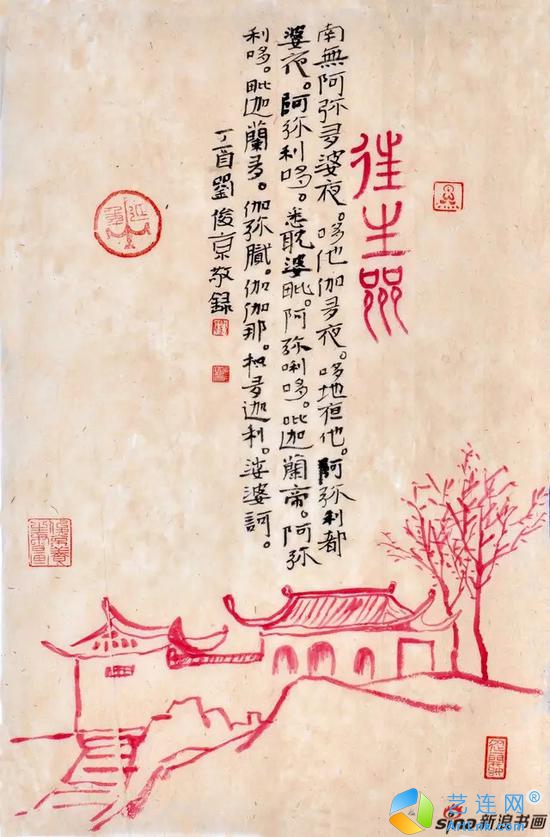 往生咒
南無阿弥多婆夜。哆他伽多夜。哆地夜他。阿弥利都
婆夜。阿弥利哆。悉耽婆毗。阿弥唎哆。毗迦蘭帝。阿弥
利哆。毗迦蘭多。伽弥膩。伽伽那。枳多迦利。娑婆訶。
丁酉劉俊京敬録
艺连网
sina新浪书画